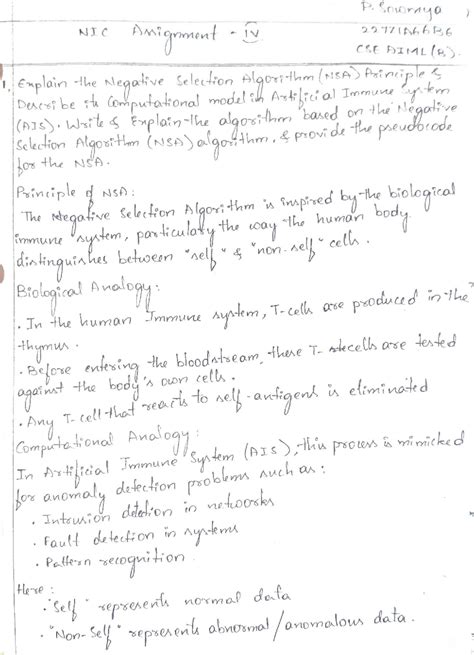 P. Sowmya
NIC Assignment - IV
22771A66B6
CSE AIML(B).
1. Explain the Negative Selection Algorithm (NSA) Principle &
Describe its Computational model in Artificial Immune System
(AIS). Write & Explain the algorithm based on the Negative
Selection Algorithm (NSA) algorithm, & provide the pseudocode
for the NSA.
Principle of NSA:
The Negative Selection Algorithm is inspired by the biological
immune system, particularly the way the human body
distinguishes between "self" & "non-self" cells.
Biological Analogy:
• In the human Immune system, T-cells are produced in the
thymus.
• Before entering the bloodstream, these T-cells are tested
against the body's own cells.
• Any T-cell that reacts to self-antigens is eliminated
Computational Analogy:
In Artificial Immune System (AIS), this process is mimicked
for anomaly detection problems such as:
• Intrusion detection in networks
• Fault detection in systems
• Pattern recognition.
Here:
• "Self" represents normal data
• "Non-Self" represents abnormal/anomalous data.